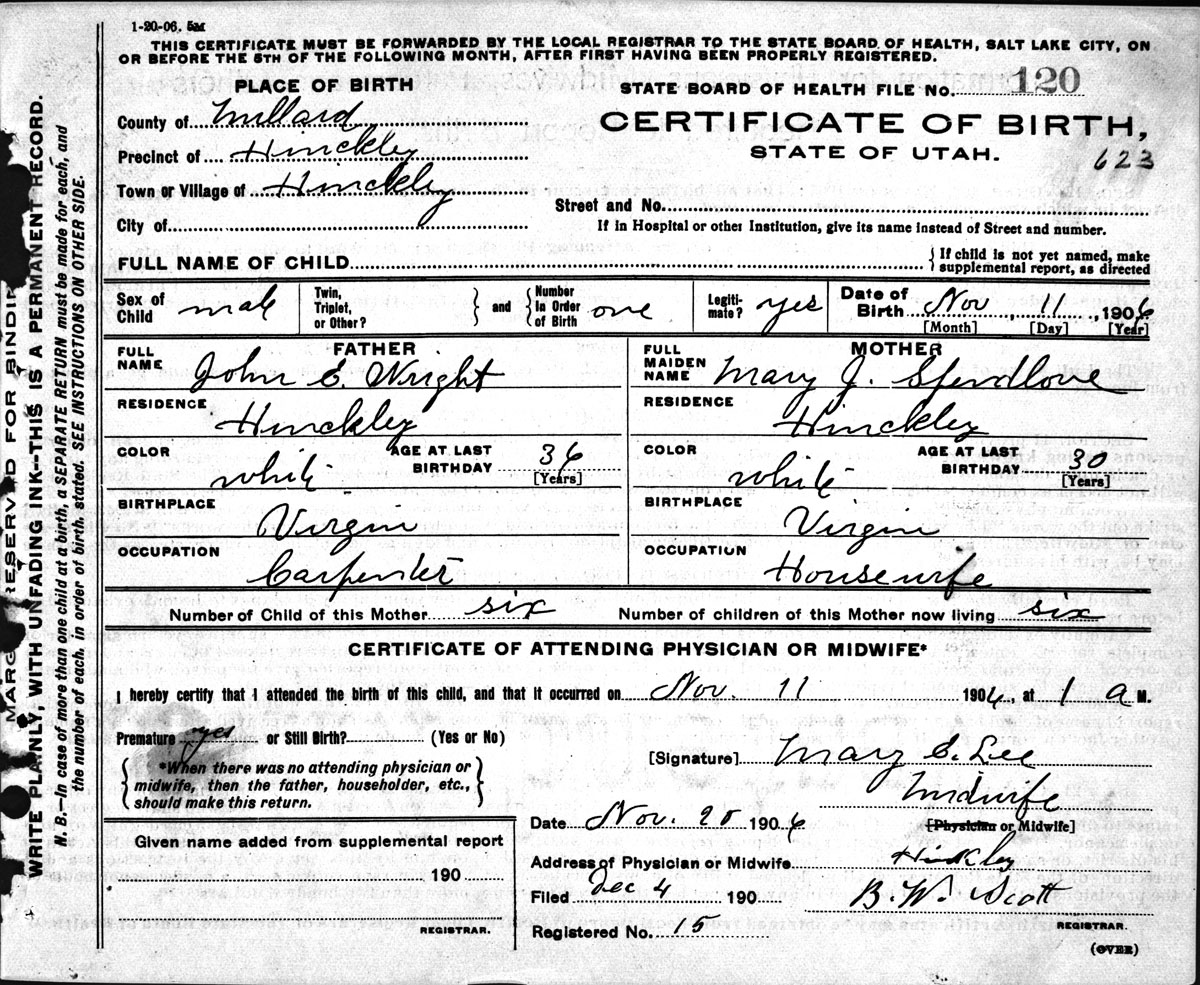 1-20-06. 5M
THIS CERTIFICATE MUST BE FORWARDED BY THE LOCAL REGISTRAR TO THE STATE BOARD OF HEALTH, SALT LAKE CITY, ON
OR BEFORE THE 5TH OF THE FOLLOWING MONTH, AFTER FIRST HAVING BEEN PROPERLY REGISTERED.
PLACE OF BIRTH
STATE BOARD OF HEALTH FILE No. 120
County of Millard
CERTIFICATE OF BIRTH,
Precinct of Hinckley
STATE OF UTAH.
623
Town or Village of Hinckley
Street and No.
City of
If in Hospital or other Institution, give its name instead of Street and number.
FULL NAME OF CHILD
{ If child is not yet named, make
supplemental report, as directed
Sex of Child male
Twin, Triplet, or Other?
} and { Number in Order of Birth one
Legiti-mate? yes
Date of Birth Nov 11, 1906
[Month] [Day] [Year]
FATHER
FULL NAME John E. Wright
RESIDENCE Hinckley
COLOR white
AGE AT LAST BIRTHDAY 36 [Years]
BIRTHPLACE Virgin
OCCUPATION Carpenter
MOTHER
FULL MAIDEN NAME Mary J. Spendlove
RESIDENCE Hinckley
COLOR white
AGE AT LAST BIRTHDAY 30 [Years]
BIRTHPLACE Virgin
OCCUPATION Housewife
Number of Child of this Mother six
Number of children of this Mother now living six
CERTIFICATE OF ATTENDING PHYSICIAN OR MIDWIFE*
I hereby certify that I attended the birth of this child, and that it occurred on Nov. 11 1906, at 1 a M.
Premature yes or Still Birth? (Yes or No)
{ *When there was no attending physician or
midwife, then the father, householder, etc.,
should make this return. }
[Signature] Mary E. Lee
Midwife
[Physician or Midwife]
Date Nov. 20 1906
Address of Physician or Midwife Hinkley
Filed Dec 4 190
B. W. Scott
REGISTRAR.
Registered No. 15
(OVER)
Given name added from supplemental report
190
REGISTRAR.
MARGIN RESERVED FOR BINDING
WRITE PLAINLY, WITH UNFADING INK—THIS IS A PERMANENT RECORD.
N. B.—In case of more than one child at a birth, a SEPARATE RETURN must be made for each, and
the number of each, in order of birth, stated. SEE INSTRUCTIONS ON OTHER SIDE.